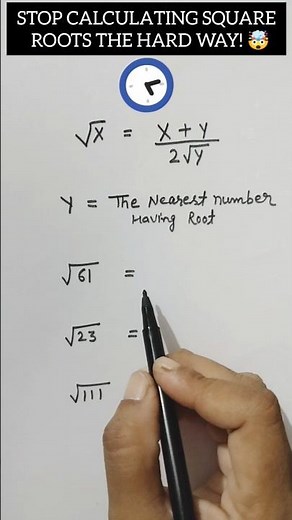 STOP CALCULATING SQUARE
ROOTS THE HARD WAY! 🤯
√X = X + Y / 2√Y
Y = The Nearest number
Having Root
√61 =
√23 =
√111